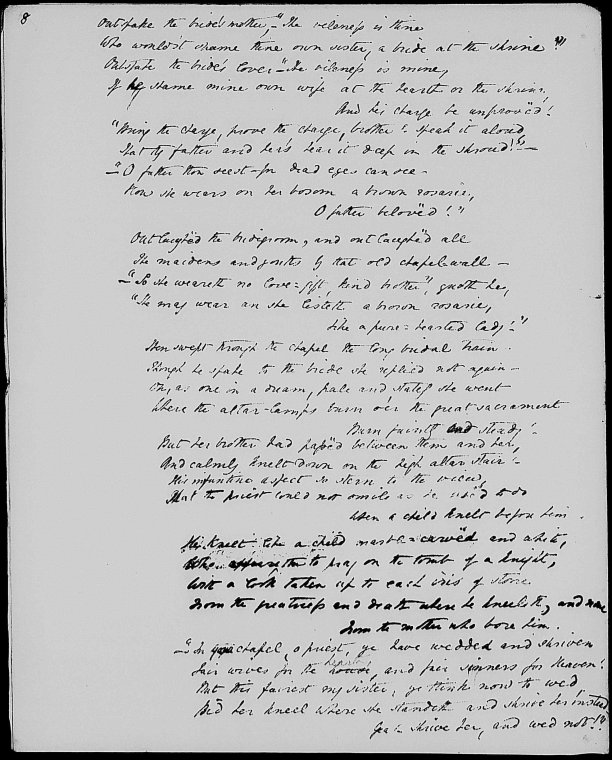 8
Outspake the bride's mother,—"The vileness is thine
Who wouldst shame thine own sister, a bride at the shrine!"
Outspake the bride's lover—"The vileness is mine,
If he shame mine own wife at the hearth or the shrine,
And his charge be unprovëd!
"Bring the charge, prove the charge, brother! speak it aloud,
That thy father and her's hear it deep in the shroud!"—
—"O father thou seest—for dead eyes can see—
How she wears on her bosom a brown rosarie,
O father belovëd!"
Out laughëd the bridegroom, and out laughëd all
The maidens and youths by that old chapel-wall—
—"So she weareth no love=gift, kind brother", quoth he,
"She may wear an she listeth a brown rosarie,
Like a pure=hearted lady!"
Then swept through the chapel the long bridal train.
Though he spake to the bride she replied not again—
On, as one in a dream, pale and stately she went
Where the altar-lamps burn o'er the great sacrament
Burn faint and steady!
But her brother had passed between them and her,
And calmly knelt down on the high altar stair—
His infantine aspect so stern to the view,
That the priest could not smile as he used to do
When a child knelt before him.
He knelt like a child marble=carvëd and white,
to pray on the tomb of a knight,
With a look taken up to each iris of stone
From the greatness and death where he kneeleth, and none
From the mother who bore him.
—"In your chapel, o priest, ye have wedded and shriven
Fair wives for the hearth, and fair sinners for heaven!
But this fairest my sister, ye think now to wed,
Bid her kneel where she standeth and shrive her instead—
Yea—shrive her, and wed not!"